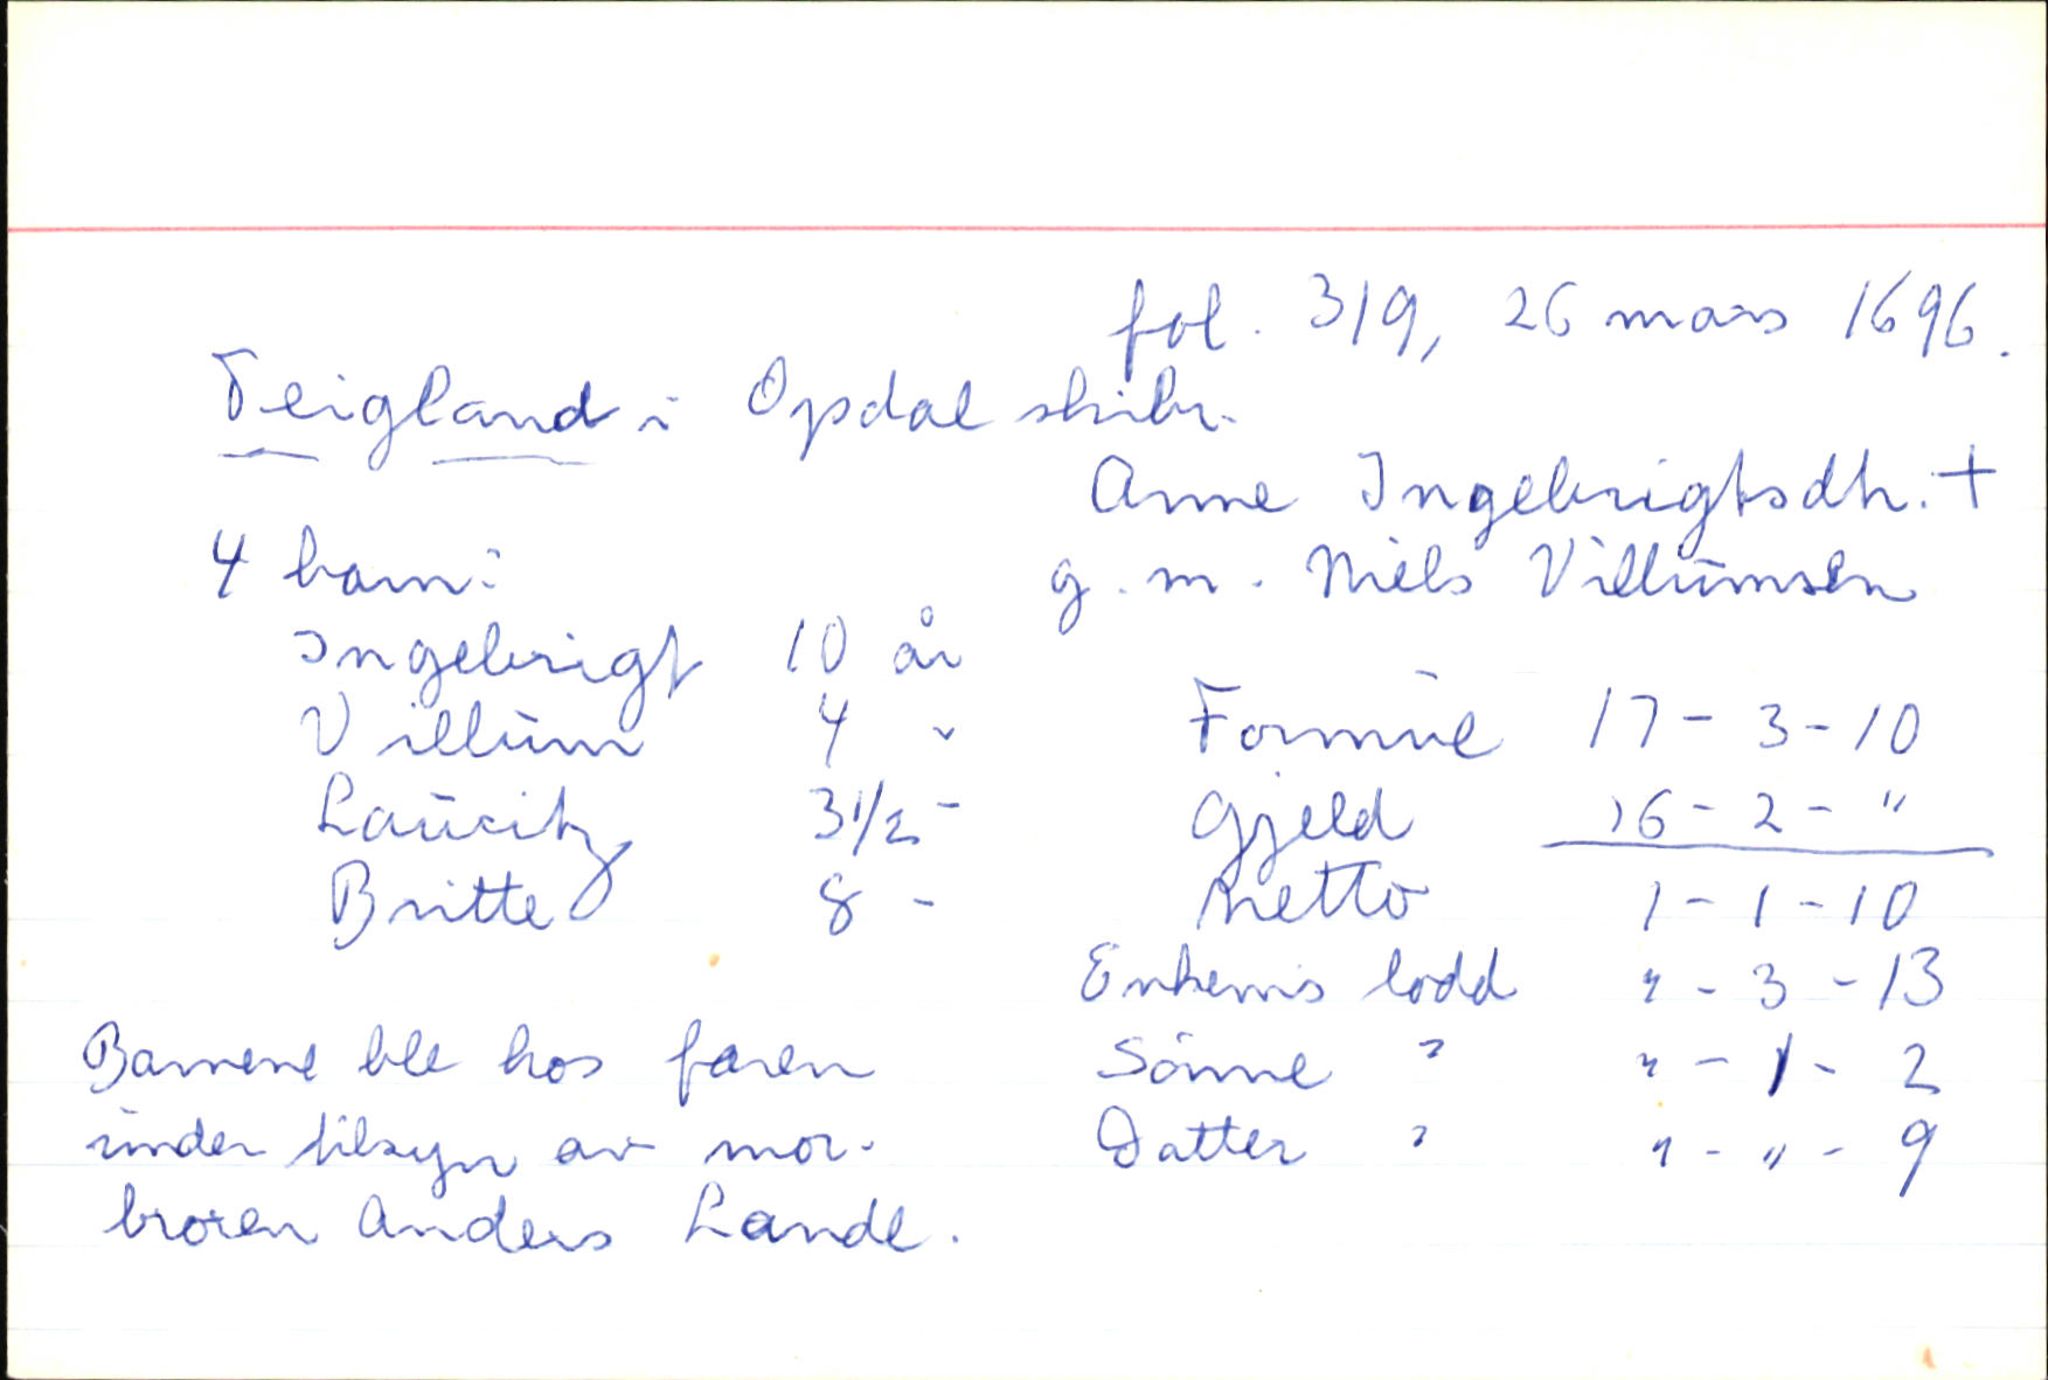 fol. 319, 26 mars 1696.
Teigland i Opdal skibr.
Anne Ingebrigtsdtr. +
g. m. Niels Villumsen
4 barn:
Ingebrigt 10 år
Villum 4 "
Lauritz 3 1/2 -
Britte 8 -
Formue 17 - 3 - 10
Gjeld 16 - 2 - "
Netto 1 - 1 - 10
Enkems lodd " - 3 - 13
Sönne " " - 1 - 2
Datter " " - " - 9
Barnene ble hos faren
under tilsyn av mor-
broren Anders Lande.